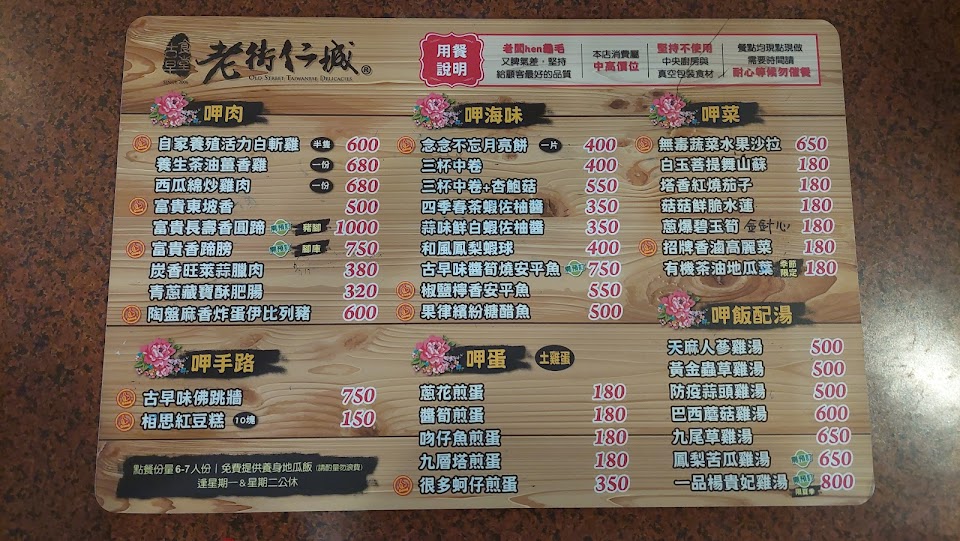 古早食堂
老街仁城®
OLD STREET TAIWANESE DELICACIES
用餐說明
老闆hen龜毛
又脾氣差,堅持
給顧客最好的品質
本店消費屬
中高價位
堅持不使用
中央廚房與
真空包裝食材
餐點均現點現做
需要時間請
耐心等候勿催餐
呷肉
自家養殖活力白斬雞 半隻 600
養生茶油薑香雞 一份 680
西瓜綿炒雞肉 一份 680
富貴東坡香 500
富貴長壽香圓蹄 需預訂 豬腳 1000
富貴香蹄膀 需預訂 腳庫 750
炭香旺萊蒜臘肉 380
青蔥藏寶酥肥腸 320
陶盤麻香炸蛋伊比列豬 600
呷手路
古早味佛跳牆 750
相思紅豆糕 10塊 150
點餐份量6-7人份|免費提供養身地瓜飯(請酌量勿浪費)
逢星期一&星期二公休
呷海味
念念不忘月亮餅 一片 400
三杯中卷 400
三杯中卷+杏鮑菇 550
四季春茶蝦佐柚醬 350
蒜味鮮白蝦佐柚醬 350
和風鳳梨蝦球 400
古早味醬筍燒安平魚 需預訂 750
椒鹽檸香安平魚 550
果律繽紛糖醋魚 500
呷蛋 土雞蛋
蔥花煎蛋 180
醬筍煎蛋 180
吻仔魚煎蛋 180
九層塔煎蛋 180
很多蚵仔煎蛋 350
呷菜
無毒蔬菜水果沙拉 650
白玉菩提舞山蘇 180
塔香紅燒茄子 180
菇菇鮮脆水蓮 180
蔥爆碧玉筍 金針心 180
招牌香滷高麗菜 180
有機茶油地瓜葉 季節限定 180
呷飯配湯
天麻人蔘雞湯 500
黃金蟲草雞湯 500
防疫蒜頭雞湯 500
巴西蘑菇雞湯 600
九尾草雞湯 650
鳳梨苦瓜雞湯 需預訂 650
一品楊貴妃雞湯 需預訂 限夏季 800